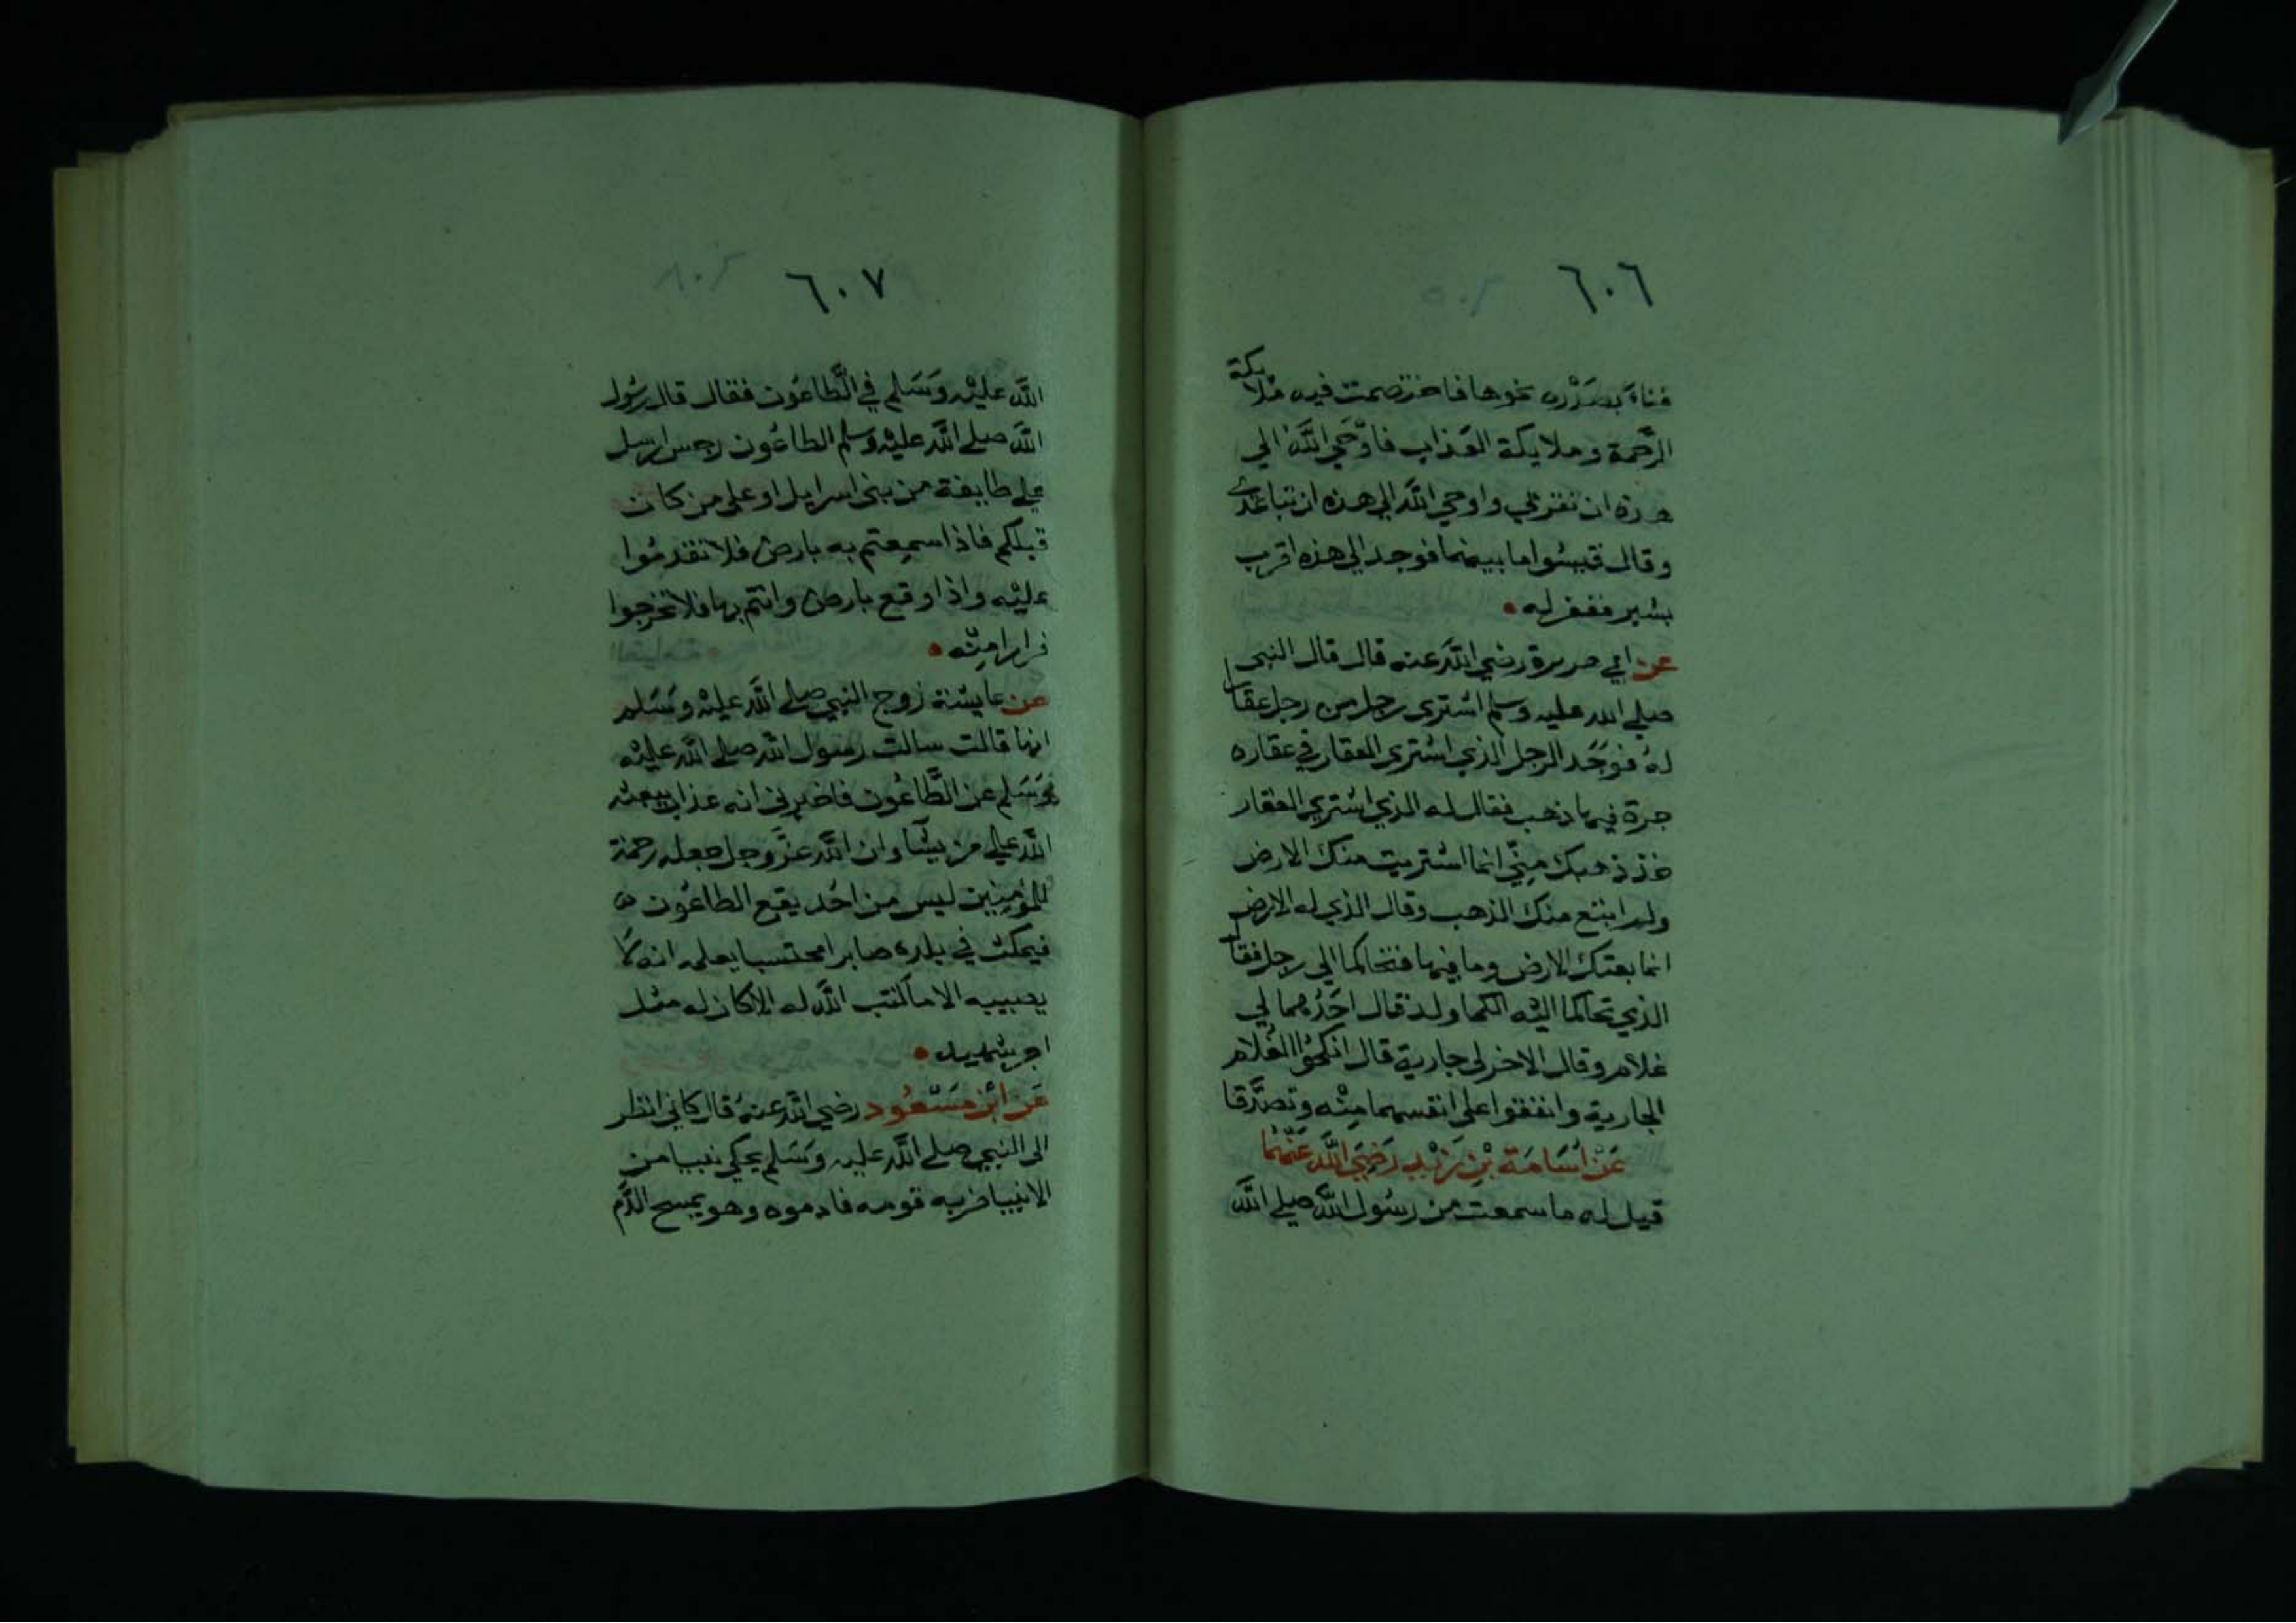 ٦٠٦
فناء بصدره نحوها فاختصمت فيه ملايكة
الرحمة وملايكة العذاب فاوحي الله الي
هذه ان تقربي واوحي الله الي هذه ان تباعدي
وقال قيسوا ما بينهما فوجد الي هذه اقرب
بشبر فغفر له
عن ابي هريرة رضي الله عنه قال قال النبي
صلي الله عليه وسلم اشتري رجل من رجل عقارا
له فوجد الرجل الذي اشتري العقار في عقاره
جرة فيها ذهب فقال له الذي اشتري العقار
خذ ذهبك مني انما اشتريت منك الارض
ولم ابتع منك الذهب وقال الذي له الارض
انما بعتك الارض وما فيها فتحاكما الي رجل فقال
الذي تحاكما اليه الكما ولد قال احدهما لي
غلام وقال الاخر لي جارية قال انكحوا الغلام
الجارية وانفقوا علي انفسهما منه وتصدقا
عَنْ اُسَامَةَ بْنِ زَيْدٍ رَضِيَ اللَّه عَنْهُمَا
قيل له ما سمعت من رسول الله صلي الله
٦٠٧
الله عليه وسلم في الطاعون فقال قال رسول
الله صلي الله عليه وسلم الطاعون رجس ارسل
علي طايفة من بني اسرايل او علي من كان
قبلكم فاذا سمعتم به بارض فلا تقدموا
عليه واذا وقع بارض وانتم بها فلا تخرجوا
فرارا منه
عن عايشة زوج النبي صلي الله عليه وسلم
انها قالت سالت رسول الله صلي الله عليه
وسلم عن الطاعون فاخبرني انه عذاب يبعثه
الله علي من يشا وان الله عز وجل جعله رحمة
للمؤمنين ليس من احد يقع الطاعون
فيمكث في بلده صابرا محتسبا يعلم انه لا
يصيبه الا ما كتب الله له الا كان له مثل
اجر شهيد
عَن ابْن مَسْعُود رضي الله عنه قال كاني انظر
الي النبي صلي الله عليه وسلم يحكي نبيا من
الانبيا ضربه قومه فادموه وهو يمسح الدم